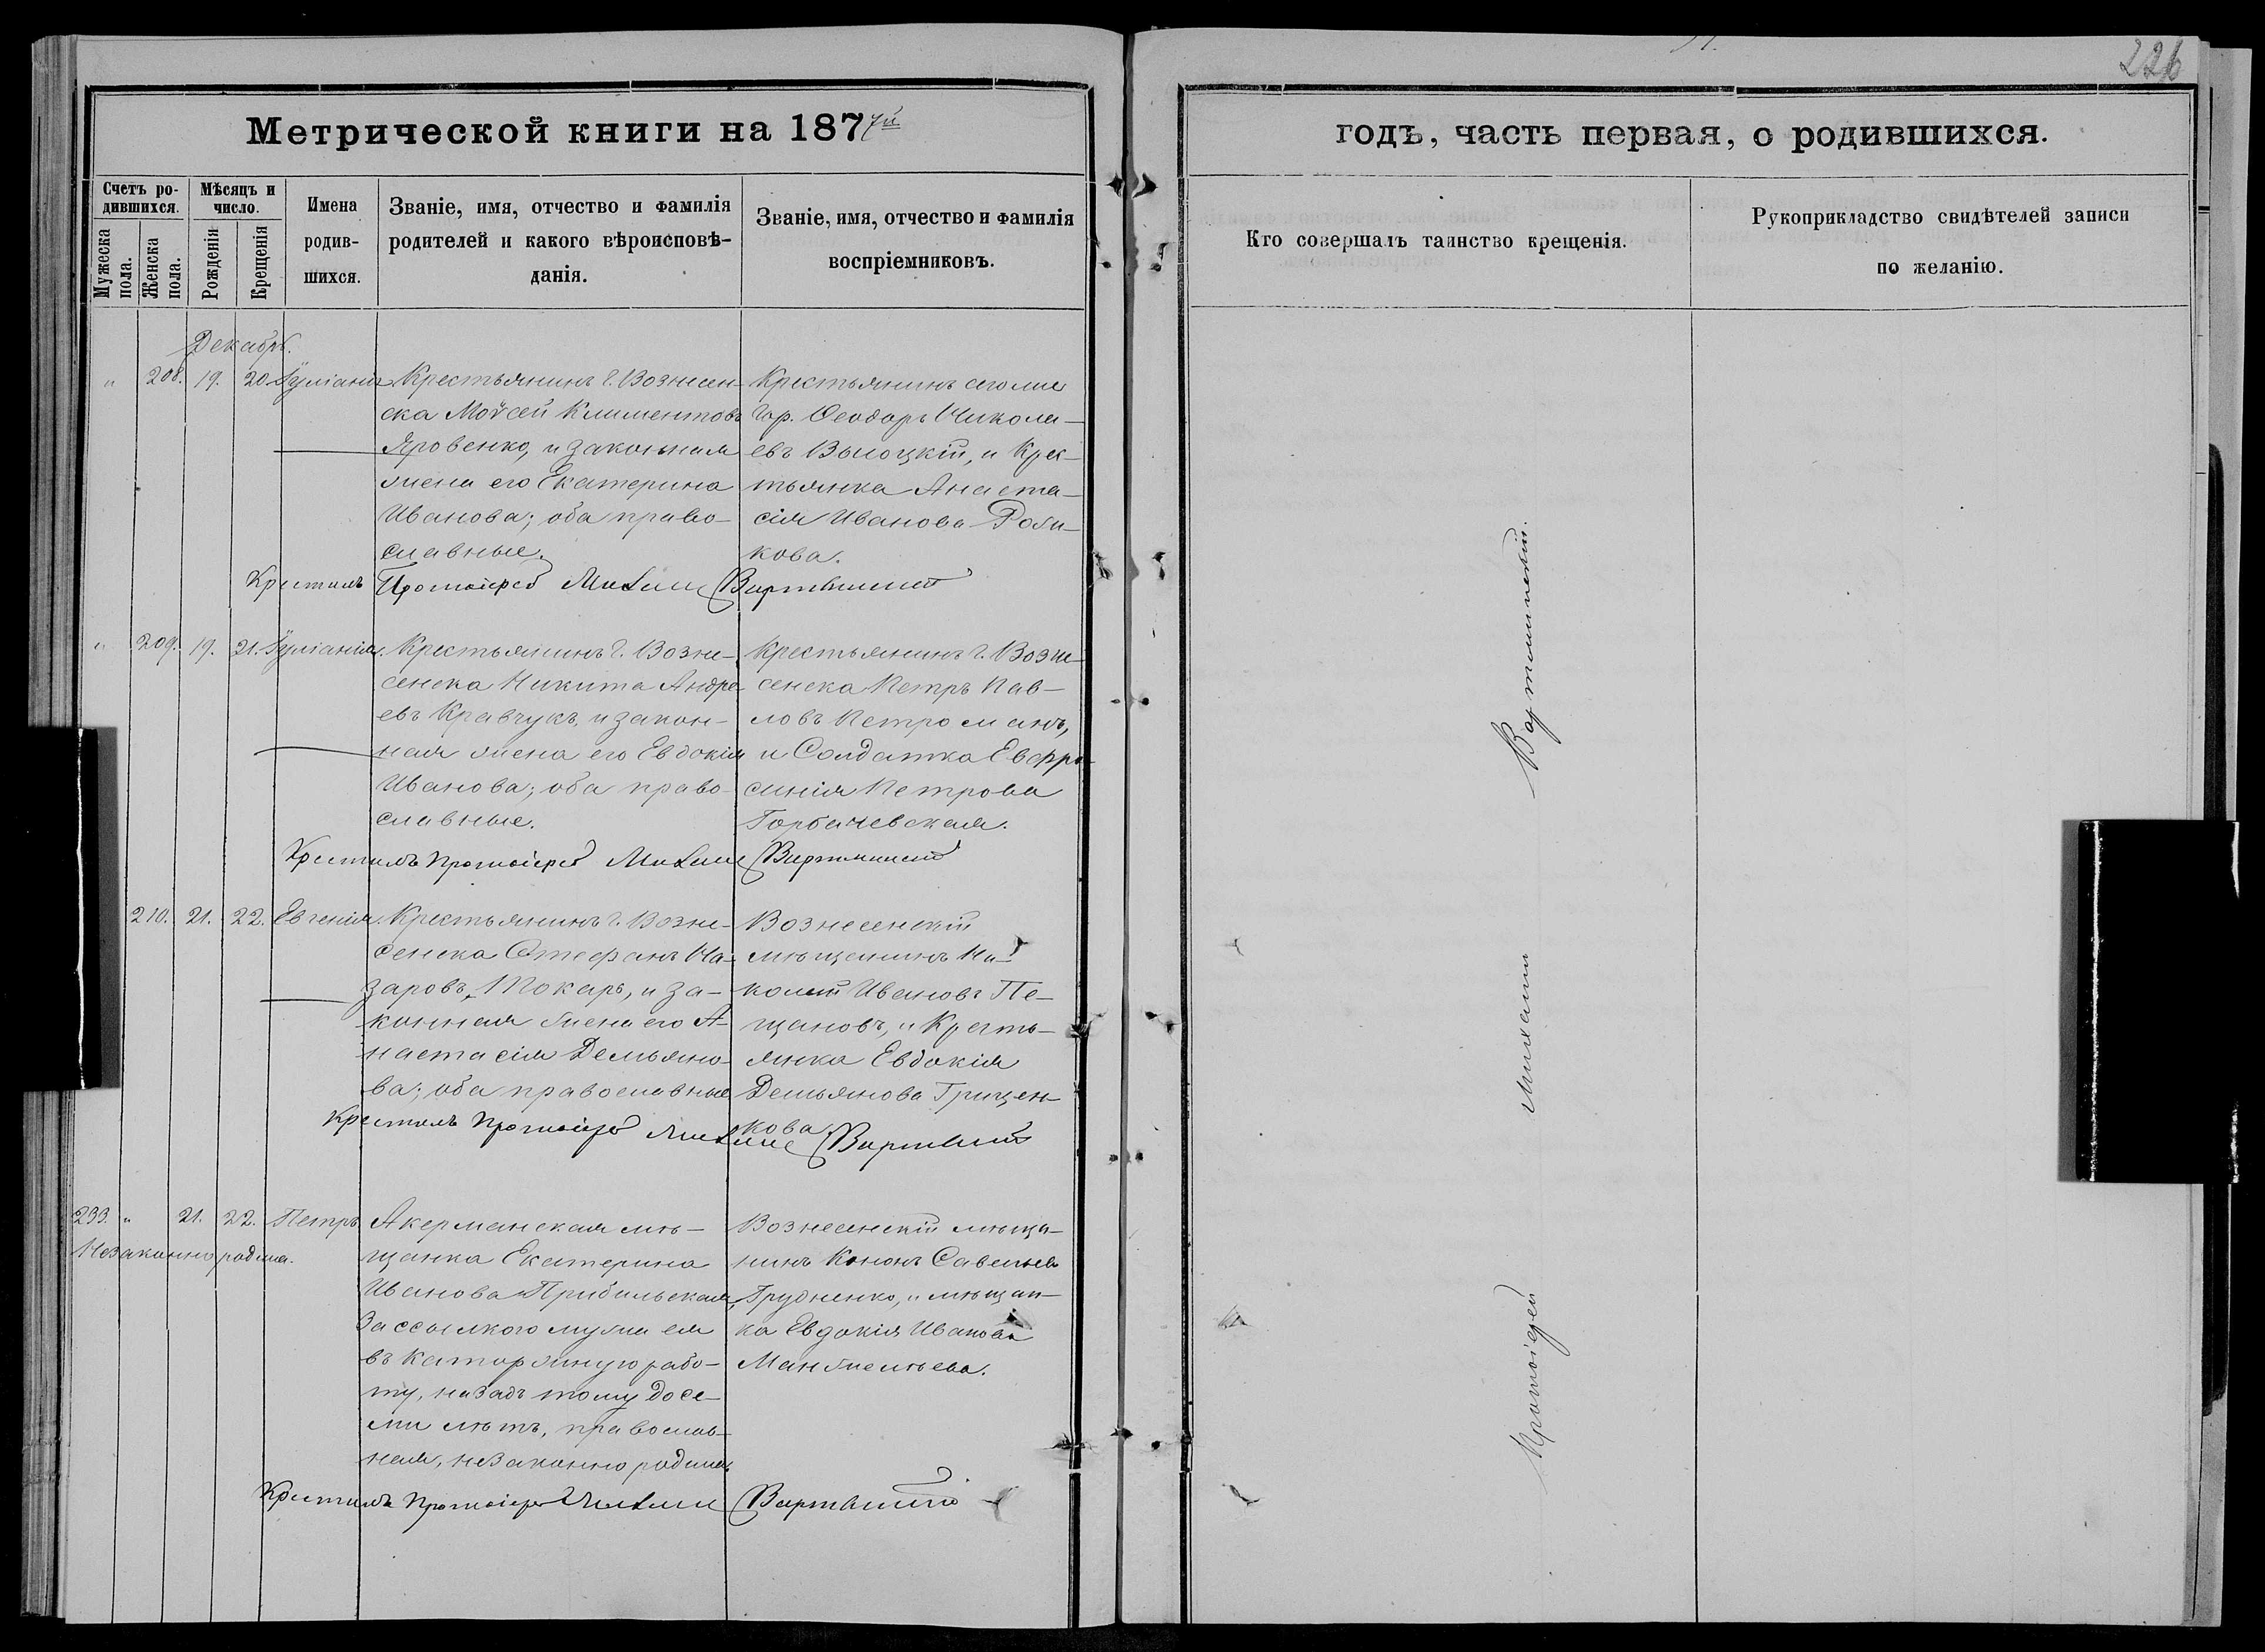 226
Метрической книги на 1877й
годъ, часть первая, о родившихся.
Счетъ ро-
дившихся.
Мужеска
пола.
Женска
пола.
Мѣсяцъ и
число.
Рожденія
Крещенія
Имена
родив-
шихся.
Званіе, имя, отчество и фамилія
родителей и какого вѣроисповѣ-
данія.
Званіе, имя, отчество и фамилія
воспріемниковъ.
Кто совершалъ таинство крещенія.
Рукоприкладство свидѣтелей записи
по желанію.
Декабрь.
" 208. 19. 20 Іуліанія
Крестьянинъ г. Вознесен-
ска Моѵсей Климентовъ
Яровенко, и законная
жена его Екатерина
Иванова; оба право-
славные.
Крестьянинъ сего же
гор. Ѳеодоръ Никола-
евъ Высоцкій, и Крес-
тьянка Анаста-
сія Иванова
кова.
Крестилъ Протоіерей Михаилъ Вартминскій
" 209. 19. 21. Іуліанія.
Крестьянинъ г. Возне-
сенска Никита Андре-
евъ Кравчукъ, и закон-
ная жена его Евдокія
Иванова; оба право-
славные.
Крестьянинъ г. Возне-
сенска Петръ Пав-
ловъ Петроманъ,
и Солдатка Евфро-
синія Петрова
Горбачевская.
Крестилъ Протоіерей Михаилъ Вартминскій
210. 21. 22. Евгенія.
Крестьянинъ г. Возне-
сенска Стефанъ На-
заровъ Токарь, и за-
конная жена его А-
настасія Демьяно-
ва; оба православные
Вознесенскій
мѣщанинъ Ни-
колай Ивановъ Пе-
щановъ, и Кресть-
янка Евдокія
Демьянова Грицен-
кова
Крестилъ Протоіерей Михаилъ Вартминскій
233. " 21. 22. Петръ
Незаконнорожд.
Акерманская мѣ-
щанка Екатерина
Иванова Прибыльская,
За ссылкою мужа ея
въ каторжную рабо-
ту, назадъ тому до се-
ми лѣтъ, православ-
ная, незаконно родила.
Вознесенскій мѣща-
нинъ Кононъ Савельевъ
Грудненко, и мѣщан-
ка Евдокія Иванова
Манжелѣева.
Крестилъ Протоіерей Михаилъ Вартминскій
Протоіерей Михаилъ Вартминскій.